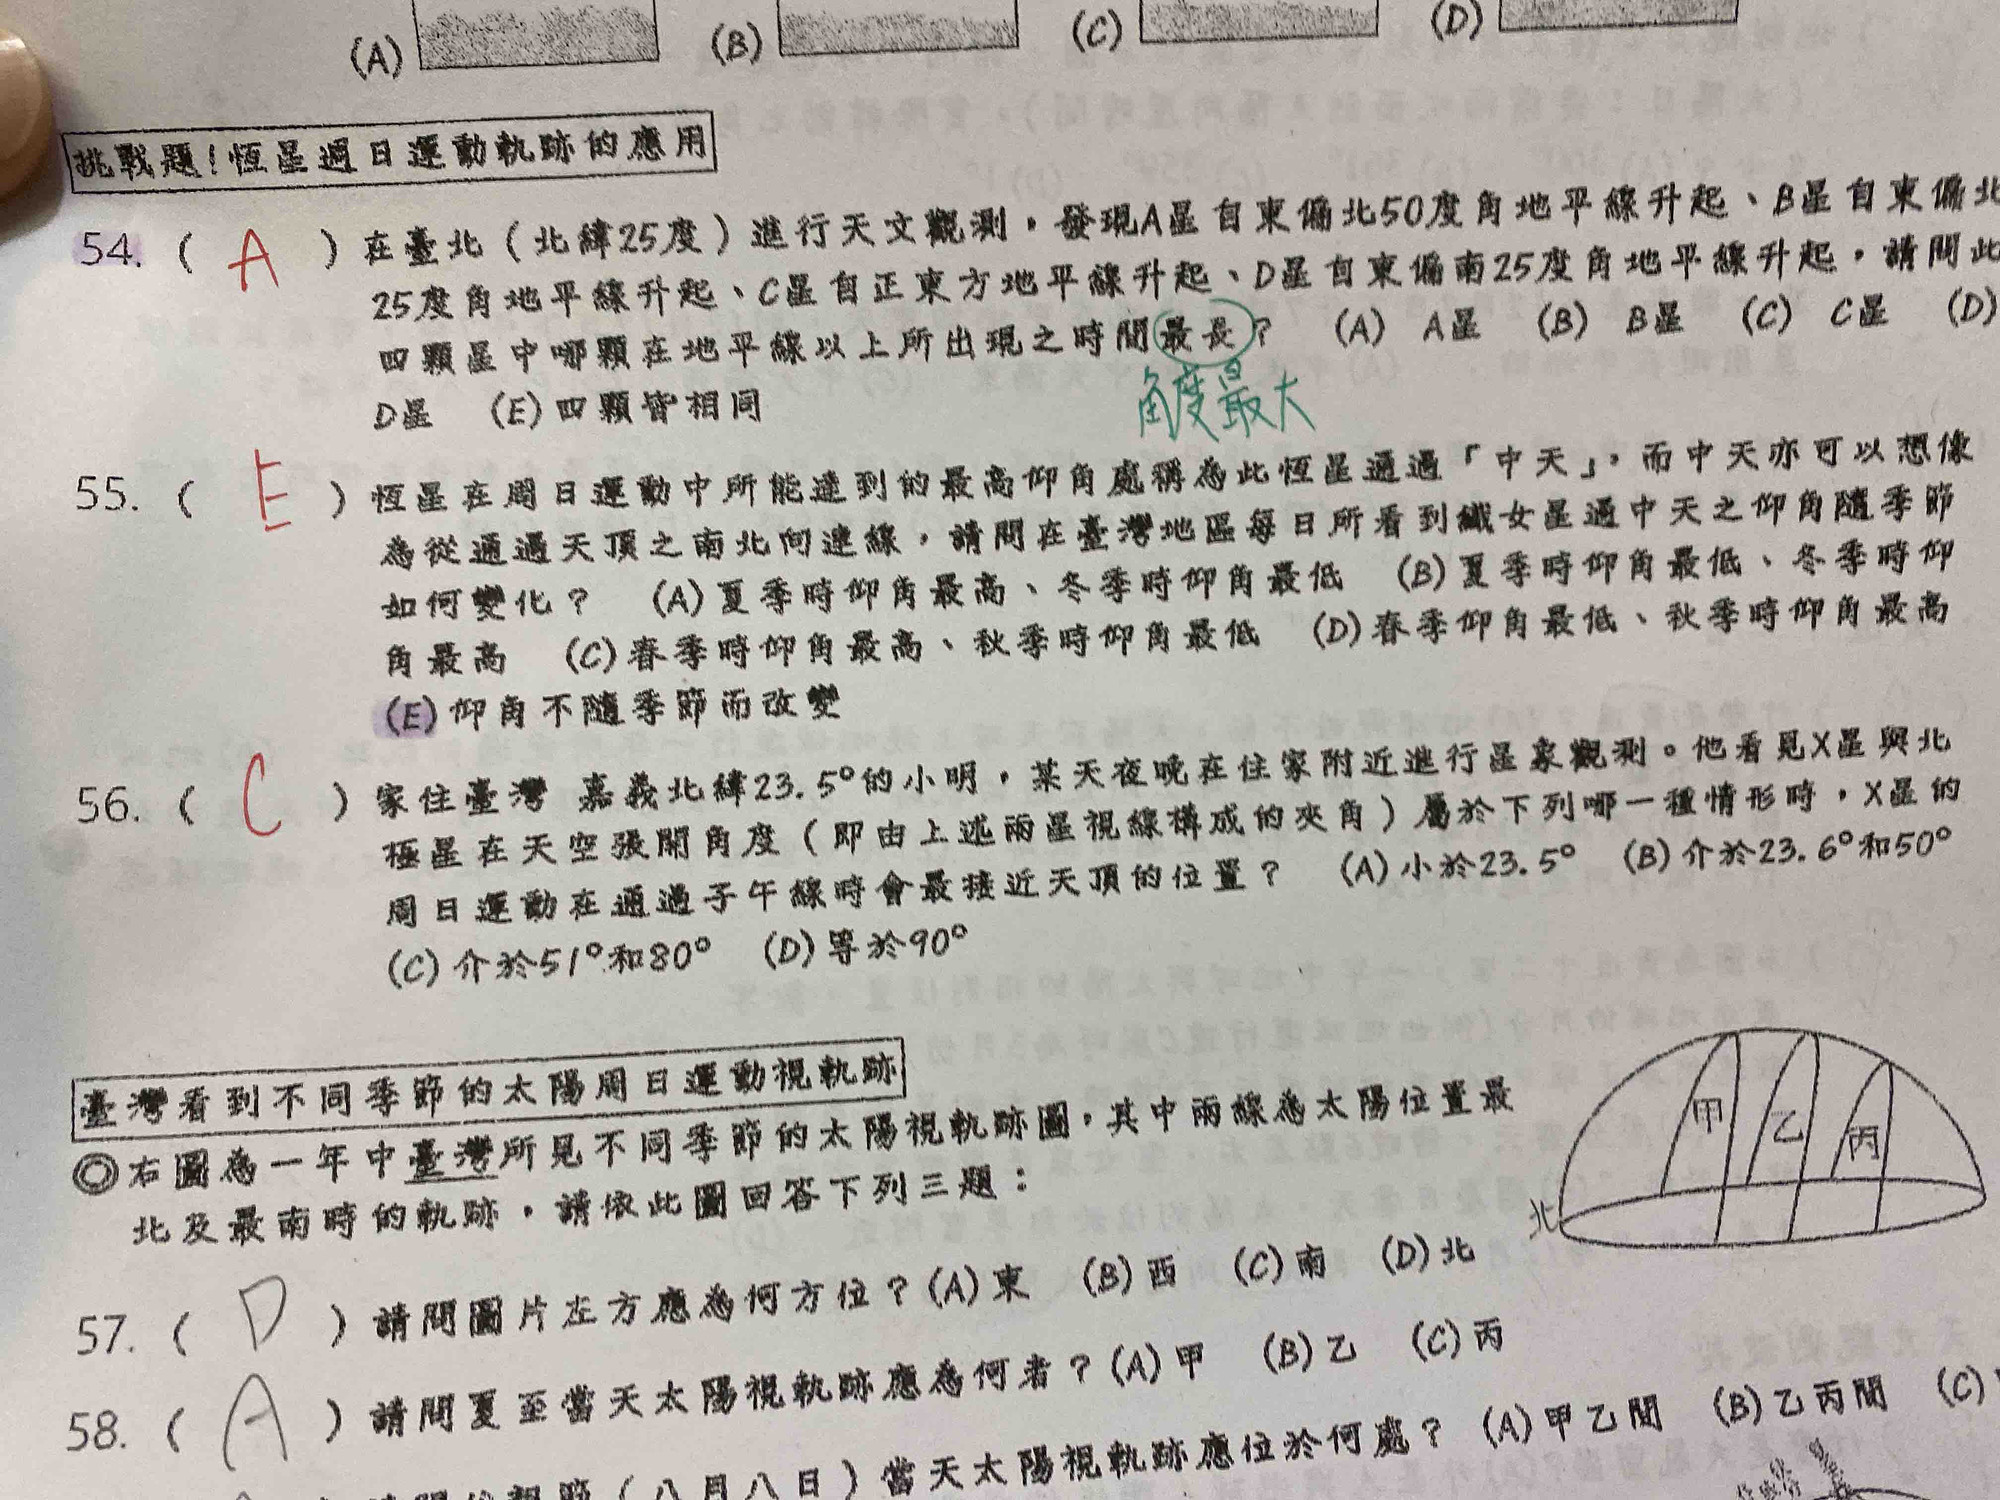 (A) (B) (C) (D)
挑戰題!恆星週日運動軌跡的應用
54. ( A ) 在臺北(北緯25度)進行天文觀測,發現A星自東偏北50度角地平線升起、B星自東偏北
25度角地平線升起、C星自正東方地平線升起、D星自東偏南25度角地平線升起,請問此
四顆星中哪顆在地平線以上所出現之時間最長? (A) A星 (B) B星 (C) C星 (D)
角度最大
D星 (E)四顆皆相同
55. ( E ) 恆星在周日運動中所能達到的最高仰角處稱為此恆星通過「中天」,而中天亦可以想像
為從通過天頂之南北向連線,請問在臺灣地區每日所看到織女星過中天之仰角隨季節
如何變化? (A)夏季時仰角最高、冬季時仰角最低 (B)夏季時仰角最低、冬季時仰
角最高 (C)春季時仰角最高、秋季時仰角最低 (D)春季仰角最低、秋季時仰角最高
(E)仰角不隨季節而改變
56. ( C ) 家住臺灣 嘉義北緯23.5°的小明,某天夜晚在住家附近進行星象觀測。他看見X星與北
極星在天空張開角度(即由上述兩星視線構成的夾角)屬於下列哪一種情形時,X星的
周日運動在通過子午線時會最接近天頂的位置? (A)小於23.5° (B)介於23.6°和50°
(C)介於51°和80° (D)等於90°
臺灣看到不同季節的太陽周日運動視軌跡
◎右圖為一年中臺灣所見不同季節的太陽視軌跡圖,其中兩線為太陽位置最
北及最南時的軌跡,請依此圖回答下列三題:
甲 乙 丙
北
57. ( D ) 請問圖片左方應為何方位?(A)東 (B)西 (C)南 (D)北
58. ( A ) 請問夏至當天太陽視軌跡應為何者?(A)甲 (B)乙 (C)丙
(八月八日)當天太陽視軌跡應位於何處? (A)甲乙間 (B)乙丙間 (C)